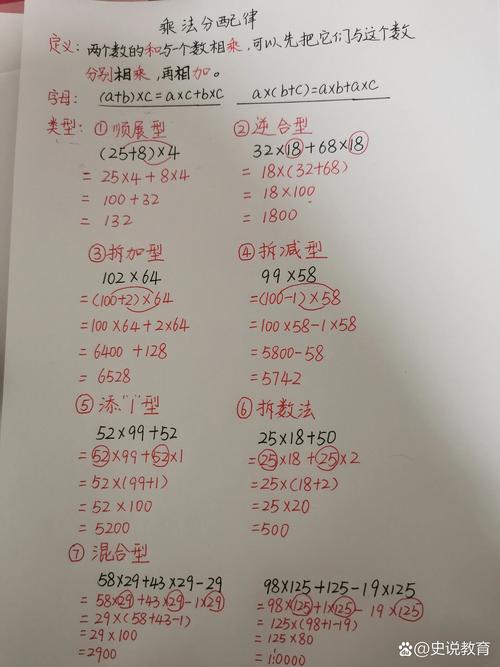 乘法分配律
定义：两个数的和与一个数相乘，可以先把它们与这个数
分别相乘，再相加。
字母：(a+b)×c=a×c+b×c a×(b+c)=a×b+a×c
类型：①顺展型
(25+8)×4
=25×4+8×4
=100+32
=132
②逆合型
32×18+68×18
=18×(32+68)
=18×100
=1800
③拆加型
102×64
=(100+2)×64
=100×64+2×64
=6400+128
=6528
④拆减型
99×58
=(100-1)×58
=100×58-1×58
=5800-58
=5742
⑤添"1"型
52×99+52
=52×99+52×1
=52×(99+1)
=52×100
=5200
⑥拆数法
25×18+50
=25×18+25×2
=25×(18+2)
=25×20
=500
⑦混合型
58×29+43×29-29
=58×29+43×29-1×29
=29×(58+43-1)
=29×100
=2900
98×125+125-19×125
=98×125+1×125-19×125
=125×(98+1-19)
=125×80
=10000
@史说教育